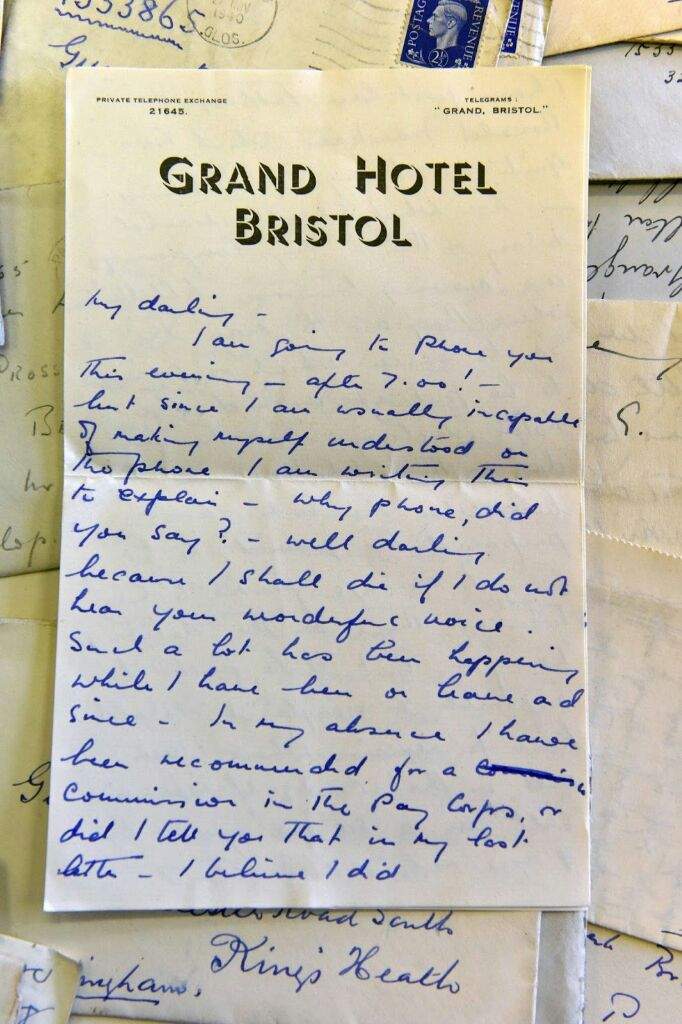 1553865.
1940
GLOS.
POSTAGE
REVENUE
2½
ENUE
PRIVATE TELEPHONE EXCHANGE
21645.
TELEGRAMS:
"GRAND, BRISTOL."
GRAND HOTEL
BRISTOL
My darling –
I am going to phone you
this evening – after 7.00! –
but since I am usually incapable
of making myself understood on
the phone I am writing this
to explain – why phone, did
you say? – well darling
because I shall die if I do not
hear your wonderful voice.
Such a lot has been happening
while I have been on leave and
since – In my absence I have
been recommended for a
commission in the Pay Corps, or
did I tell you that in my last
letter – I believe I did
Road South
King's Heath
ingham,